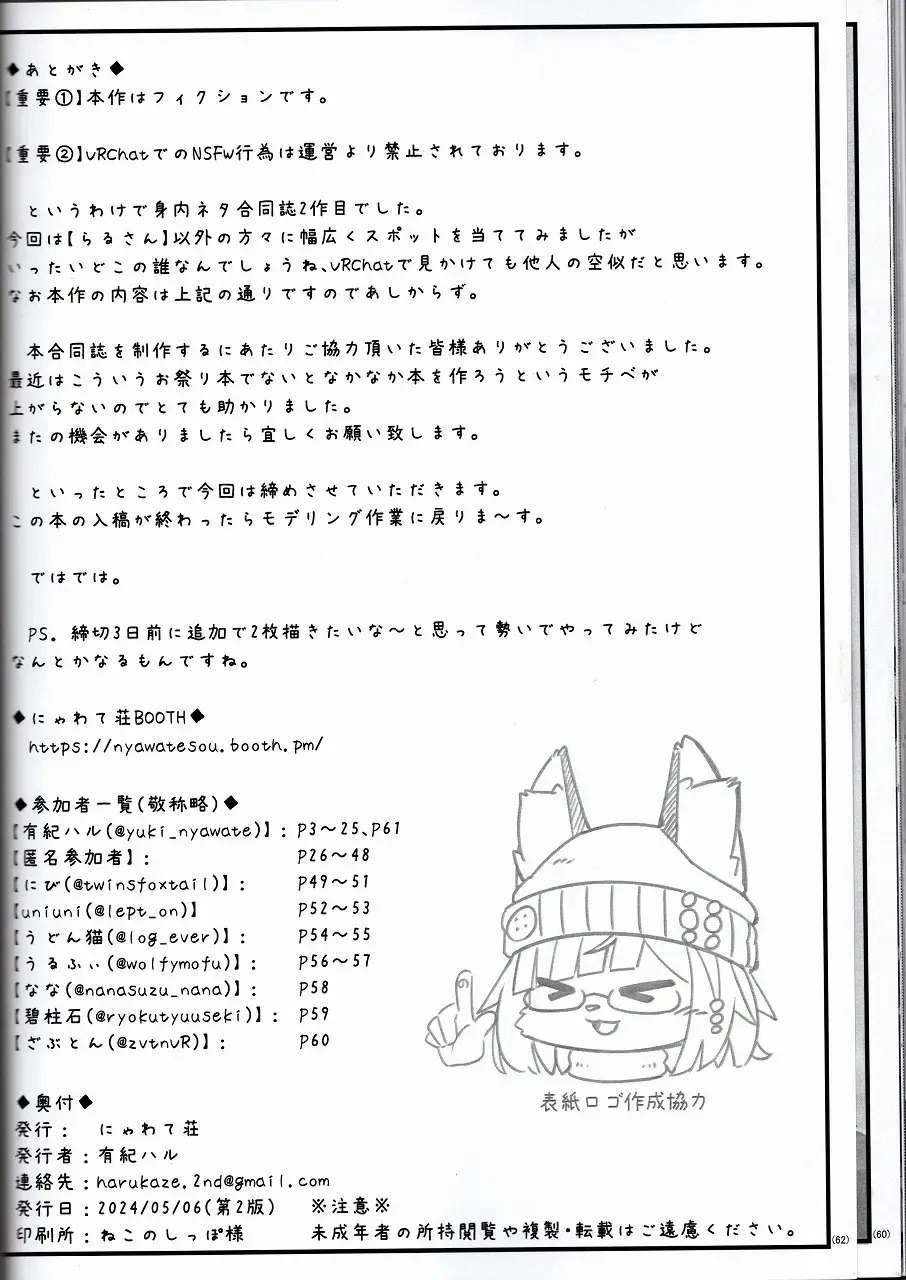 ◆あとがき◆
【重要①】本作はフィクションです。
【重要②】VRChatでのNSFW行為は運営より禁止されております。
というわけで身内ネタ合同誌2作目でした。
今回は【らるさん】以外の方々に幅広くスポットを当ててみましたが
いったいどこの誰なんでしょうね、VRChatで見かけても他人の空似だと思います。
なお本作の内容は上記の通りですのであしからず。
本合同誌を制作するにあたりご協力頂いた皆様ありがとうございました。
最近はこういうお祭り本でないとなかなか本を作ろうというモチベが
上がらないのでとても助かりました。
またの機会がありましたら宜しくお願い致します。
といったところで今回は締めさせていただきます。
この本の入稿が終わったらモデリング作業に戻りま～す。
ではでは。
PS. 締切3日前に追加で2枚描きたいな～と思って勢いでやってみたけど
なんとかなるもんですね。
◆にゃわて荘BOOTH◆
https://nyawatesou.booth.pm/
◆参加者一覧(敬称略)◆
【有紀ハル(@yuki_nyawate)】: P3～25、P61
【匿名参加者】: P26～48
【にび(@twinsfoxtail)】: P49～51
【uniuni(@lept_on)】 P52～53
【うどん猫(@log_ever)】: P54～55
【うるふぃ(@wolfymofu)】: P56～57
【なな(@nanasuzu_nana)】: P58
【碧柱石(@ryokutyuuseki)】: P59
【ざぶとん(@zvtnVR)】: P60
表紙ロゴ作成協力
◆奥付◆
発行: にゃわて荘
発行者:有紀ハル
連絡先:harukaze.2nd@gmail.com
発行日:2024/05/06(第2版) ※注意※
印刷所:ねこのしっぽ様 未成年者の所持閲覧や複製・転載はご遠慮ください。
(62)
(60)